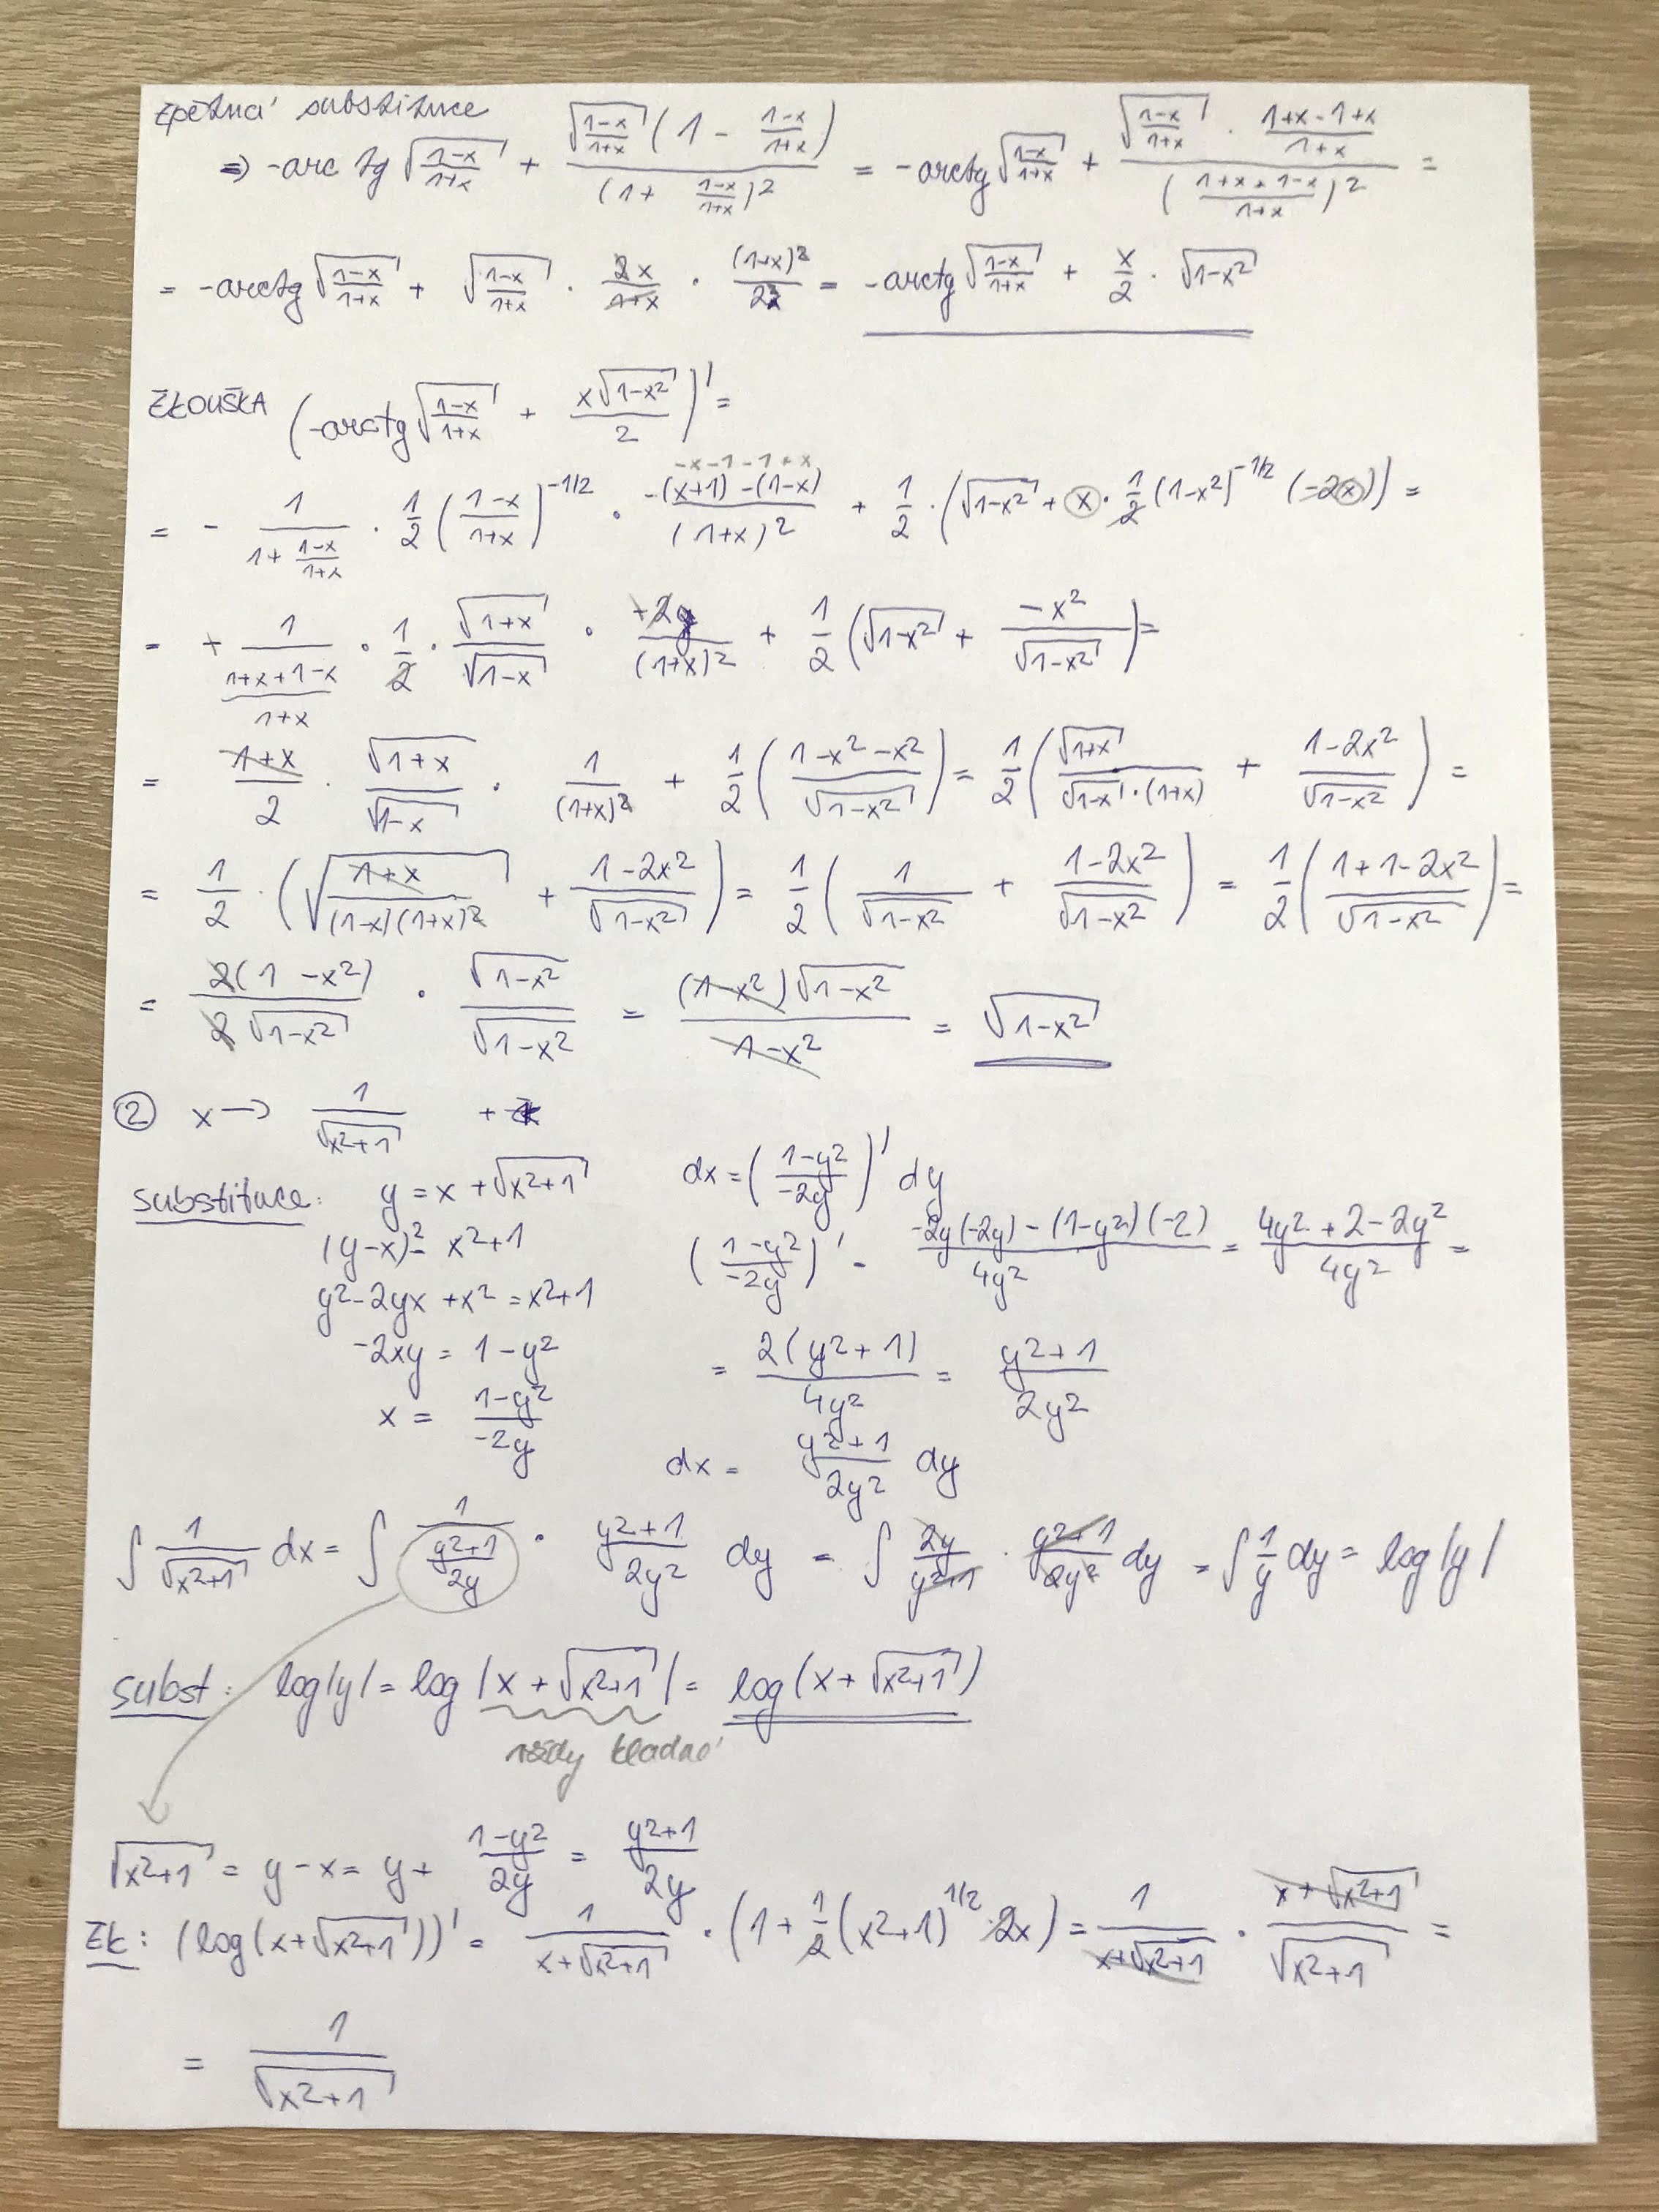 zpětná substituce
⇒ -arctg √((1-x)/(1+x)) + (√((1-x)/(1+x)) (1 - (1-x)/(1+x))) / (1 + (1-x)/(1+x))² = -arctg √((1-x)/(1+x)) + (√((1-x)/(1+x)) · (1+x-1+x)/(1+x)) / ((1+x+1-x)/(1+x))² =
= -arctg √((1-x)/(1+x)) + √((1-x)/(1+x)) · 2x/(1+x) · (1+x)²/2² = -arctg √((1-x)/(1+x)) + x/2 · √(1-x²)
ZKOUŠKA (-arctg √((1-x)/(1+x)) + x√(1-x²)/2)' =
-x-1-1+x
= - 1/(1 + (1-x)/(1+x)) · 1/2 ((1-x)/(1+x))^(-1/2) · (-(x+1) - (1-x))/(1+x)² + 1/2 · (√(1-x²) + x · 1/2 (1-x²)^(-1/2) (-2x)) =
= + 1/((1+x+1-x)/(1+x)) · 1/2 · √(1+x)/√(1-x) · +2/(1+x)² + 1/2 (√(1-x²) + -x²/√(1-x²)) =
= (1+x)/2 · √(1+x)/√(1-x) · 1/(1+x)² + 1/2 ((1-x²-x²)/√(1-x²)) = 1/2 (√(1+x)/(√(1-x) · (1+x)) + (1-2x²)/√(1-x²)) =
= 1/2 · (√((1+x)/((1-x)(1+x)²)) + (1-2x²)/√(1-x²)) = 1/2 (1/√(1-x²) + (1-2x²)/√(1-x²)) = 1/2 ((1+1-2x²)/√(1-x²)) =
= 2(1-x²)/(2√(1-x²)) · √(1-x²)/√(1-x²) = (1-x²)√(1-x²)/(1-x²) = √(1-x²)
② x → 1/√(x²+1) +
substituce: y = x + √(x²+1) dx = ((1-y²)/(-2y))' dy
(y-x)² = x²+1 ((1-y²)/(-2y))' = (-2y(-2y) - (1-y²)(-2))/4y² = (4y² + 2 - 2y²)/4y² =
y² - 2yx + x² = x²+1
-2xy = 1-y² = 2(y²+1)/4y² = (y²+1)/2y²
x = (1-y²)/(-2y)
dx = (y²+1)/2y² dy
∫ 1/√(x²+1) dx = ∫ 1/((y²+1)/2y) · (y²+1)/2y² dy = ∫ 2y/(y²+1) · (y²+1)/2y² dy = ∫ 1/y dy = log|y|
subst: log|y| = log|x + √(x²+1)| = log(x + √(x²+1))
vždy kladné
√(x²+1) = y - x = y + (1-y²)/2y = (y²+1)/2y
Zk: (log(x+√(x²+1)))' = 1/(x+√(x²+1)) · (1 + 1/2 (x²+1)^(1/2) · 2x) = 1/(x+√(x²+1)) · (x+√(x²+1))/√(x²+1) =
= 1/√(x²+1)